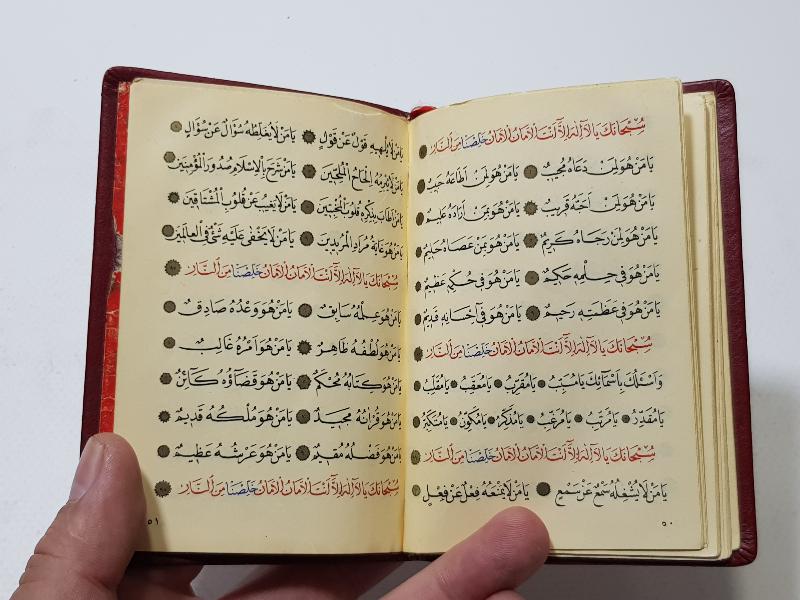 سُبْحَانَكَ يَا لَا اِلٰهَ اِلَّا اَنْتَ الْاَمَانُ الْاَمَانُ خَلِّصْنَا مِنَ النَّارِ
يَا مَنْ هُوَ لِمَنْ دَعَاهُ مُجِيبٌ يَا مَنْ هُوَ لِمَنْ اَطَاعَهُ حَبِيبٌ
يَا مَنْ هُوَ لِمَنْ اَحَبَّهُ قَرِيبٌ يَا مَنْ هُوَ بِمَنْ اَرَادَهُ عَلِيمٌ
يَا مَنْ هُوَ لِمَنْ رَجَاهُ كَرِيمٌ يَا مَنْ هُوَ بِمَنْ عَصَاهُ حَلِيمٌ
يَا مَنْ هُوَ فِى حِلْمِهِ حَكِيمٌ يَا مَنْ هُوَ فِى حُكْمِهِ عَظِيمٌ
يَا مَنْ هُوَ فِى عَظَمَتِهِ رَحِيمٌ يَا مَنْ هُوَ فِى اِحْسَانِهِ قَدِيمٌ
سُبْحَانَكَ يَا لَا اِلٰهَ اِلَّا اَنْتَ الْاَمَانُ الْاَمَانُ خَلِّصْنَا مِنَ النَّارِ
وَاَسْئَلُكَ بِاَسْمَائِكَ يَا مُسَبِّبُ يَا مُقَرِّبُ يَا مُعَقِّبُ يَا مُقَلِّبُ
يَا مُقَدِّرُ يَا مُرَتِّبُ يَا مُرَغِّبُ يَا مُذَكِّرُ يَا مُكَوِّنُ يَا مُتَكَبِّرُ
سُبْحَانَكَ يَا لَا اِلٰهَ اِلَّا اَنْتَ الْاَمَانُ الْاَمَانُ خَلِّصْنَا مِنَ النَّارِ
يَا مَنْ لَا يُشْغِلُهُ سَمْعٌ عَنْ سَمْعٍ يَا مَنْ لَا يَمْنَعُهُ فِعْلٌ عَنْ فِعْلٍ
٥٠
يَا مَنْ لَا يُلْهِيهِ قَوْلٌ عَنْ قَوْلٍ يَا مَنْ لَا يُغَلِّطُهُ سُؤَالٌ عَنْ سُؤَالٍ
يَا مَنْ لَا يُبْرِمُهُ اِلْحَاحُ الْمُلِحِّينَ يَا مَنْ شَرَحَ بِالْاِسْلَامِ صُدُورَ الْمُؤْمِنِينَ
يَا مَنْ اَطَابَ بِذِكْرِهِ قُلُوبَ الْمُخْبِتِينَ يَا مَنْ لَا يَغِيبُ عَنْ قُلُوبِ الْمُشْتَاقِينَ
يَا مَنْ هُوَ غَايَةُ مُرَادِ الْمُرِيدِينَ يَا مَنْ لَا يَخْفَى عَلَيْهِ شَىْءٌ فِى الْعَالَمِينَ
سُبْحَانَكَ يَا لَا اِلٰهَ اِلَّا اَنْتَ الْاَمَانُ الْاَمَانُ خَلِّصْنَا مِنَ النَّارِ
يَا مَنْ هُوَ عِلْمُهُ سَابِقٌ يَا مَنْ هُوَ وَعْدُهُ صَادِقٌ
يَا مَنْ هُوَ لُطْفُهُ ظَاهِرٌ يَا مَنْ هُوَ اَمْرُهُ غَالِبٌ
يَا مَنْ هُوَ كِتَابُهُ مُحْكَمٌ يَا مَنْ هُوَ قَضَاؤُهُ كَائِنٌ
يَا مَنْ هُوَ قُرْاٰنُهُ مَجِيدٌ يَا مَنْ هُوَ مُلْكُهُ قَدِيمٌ
يَا مَنْ هُوَ فَضْلُهُ مُقِيمٌ يَا مَنْ هُوَ عَرْشُهُ عَظِيمٌ
سُبْحَانَكَ يَا لَا اِلٰهَ اِلَّا اَنْتَ الْاَمَانُ الْاَمَانُ خَلِّصْنَا مِنَ النَّارِ
٥١